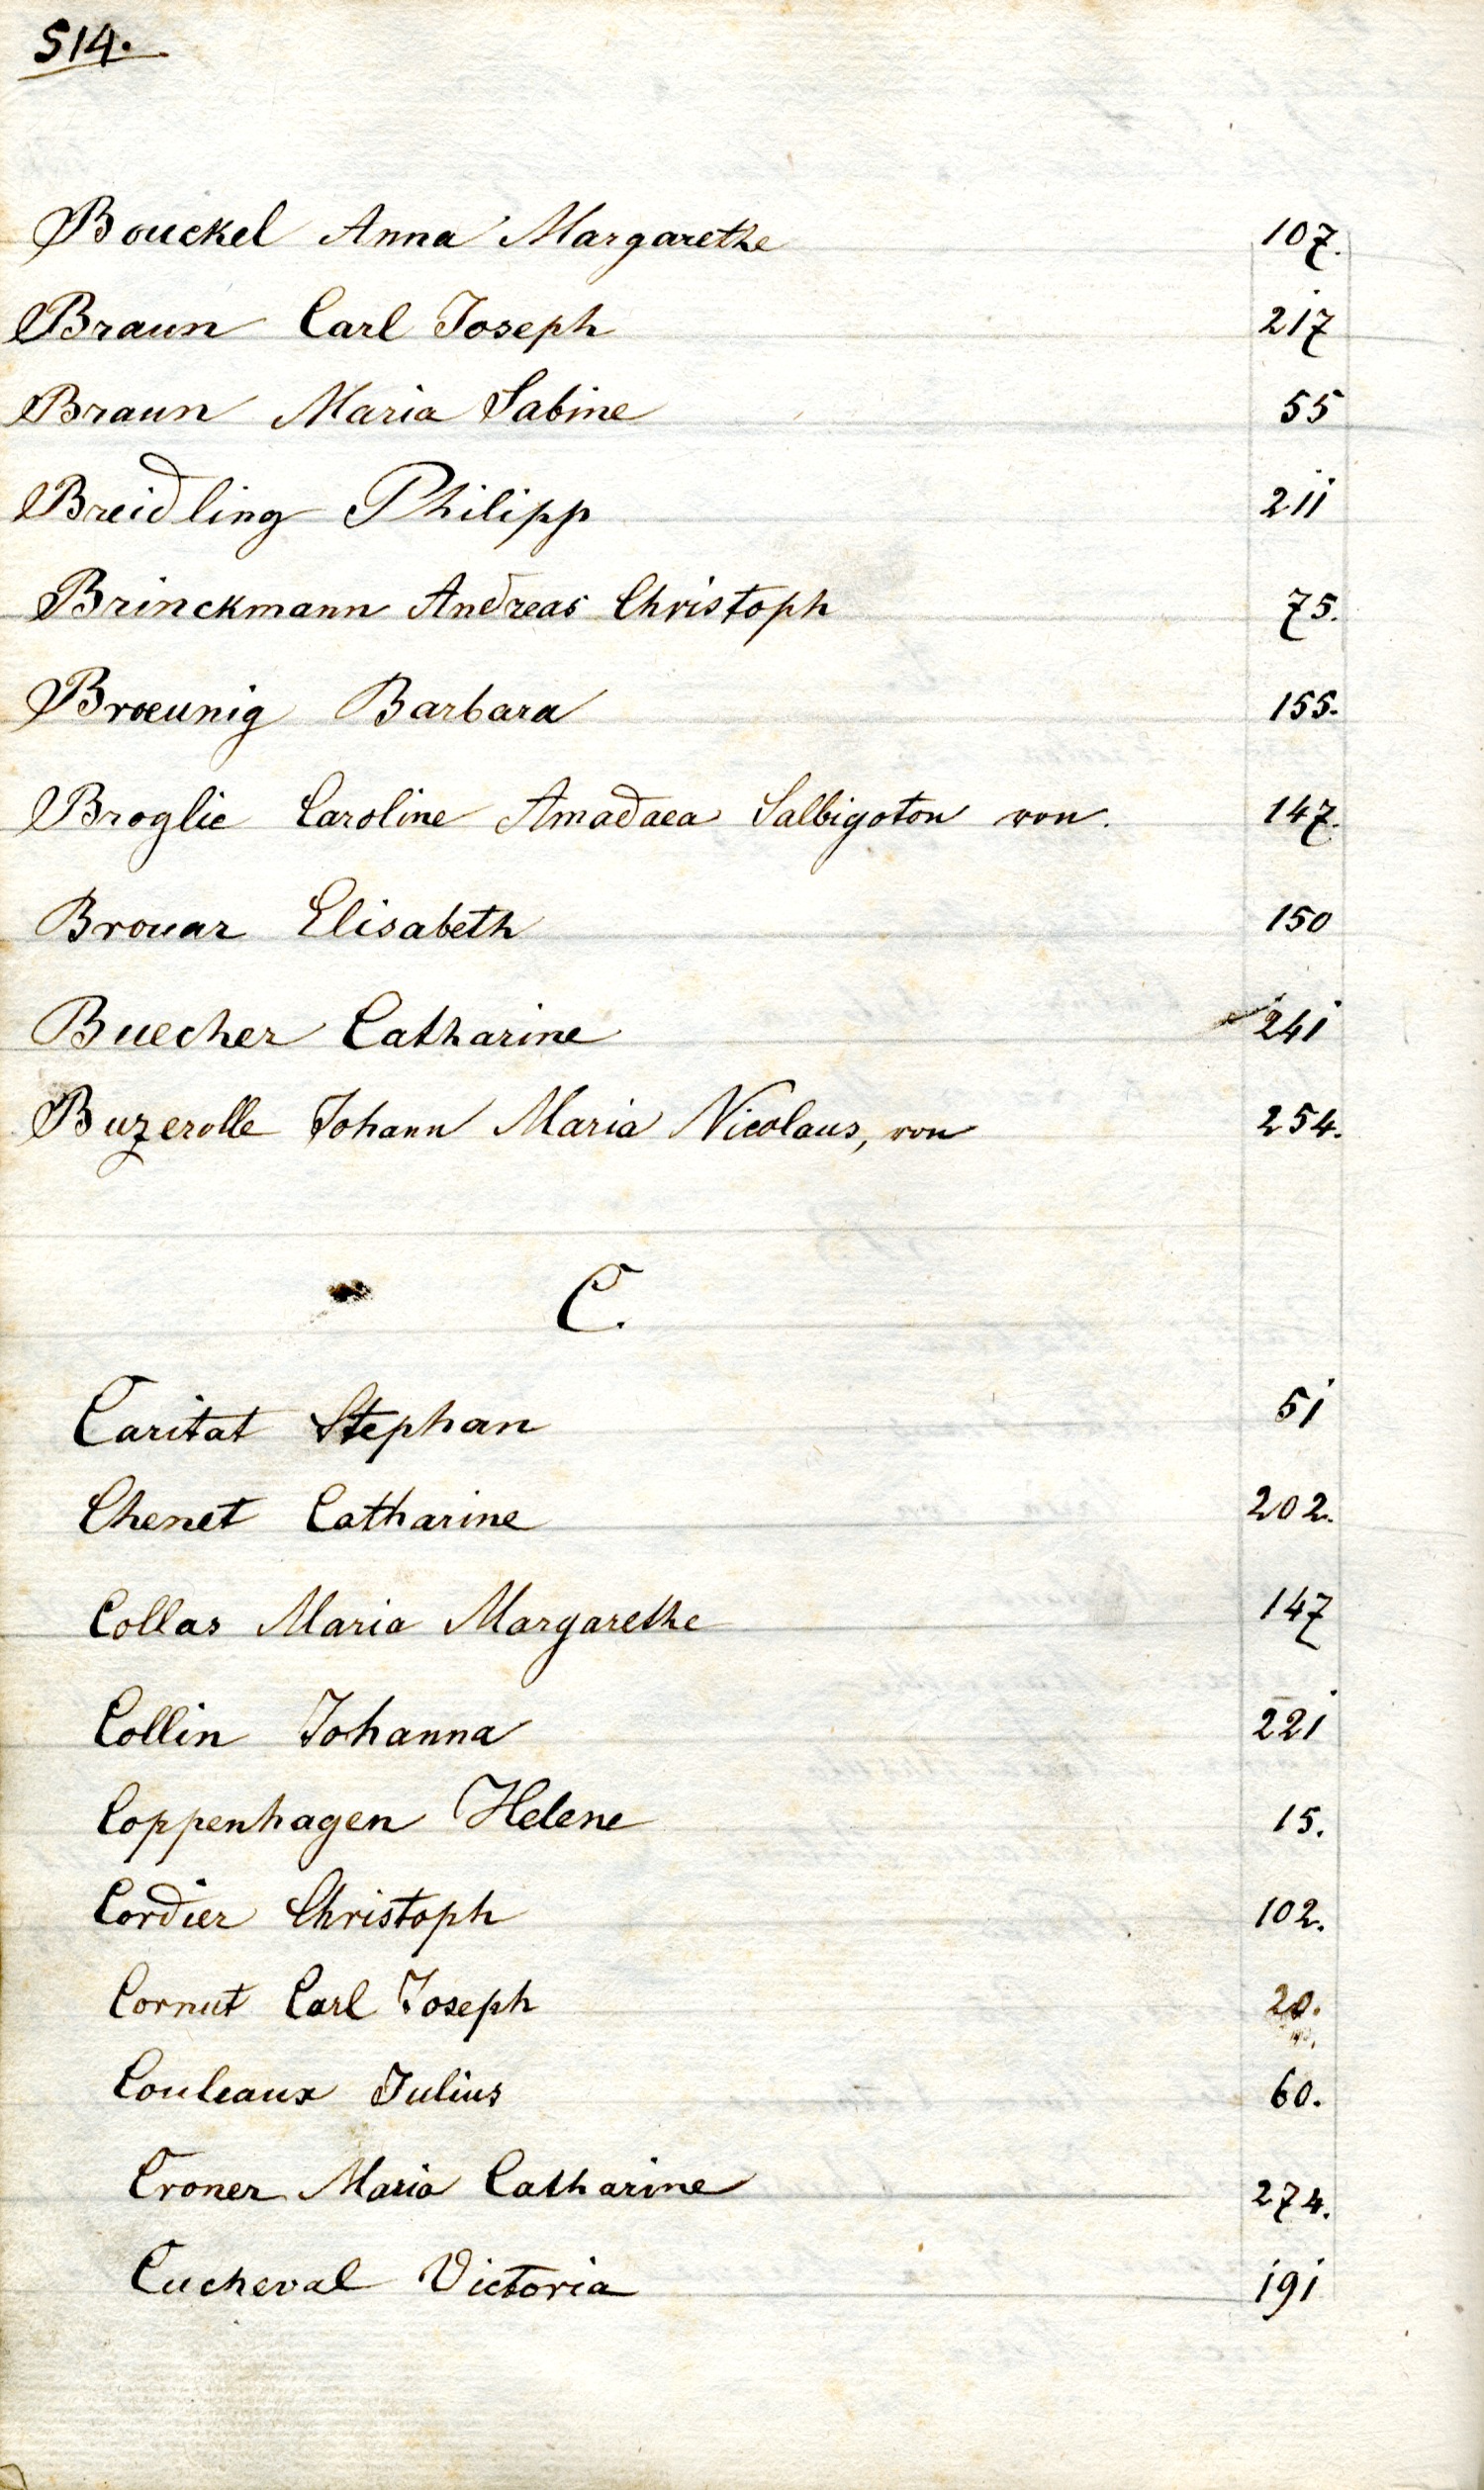 514.
Bouckel Anna Margarethe 107.
Braun Carl Joseph 217
Braun Maria Sabine 55
Breidling Philipp 211
Brinckmann Andreas Christoph 75.
Broeunig Barbara 155.
Broglie Caroline Amadaea Salbigoton von. 147.
Brouar Elisabeth 150
Buecher Catharine 241
Buzerolle Johann Maria Nicolaus, von 254.
C.
Caritat Stephan 51
Chenet Catharine 202.
Collas Maria Margarethe 147
Collin Johanna 221
Coppenhagen Helene 15.
Cordier Christoph 102.
Cornut Carl Joseph 20.
Couleaux Julius 60.
Croner Maria Catharine 274.
Cucheval Victoria 191